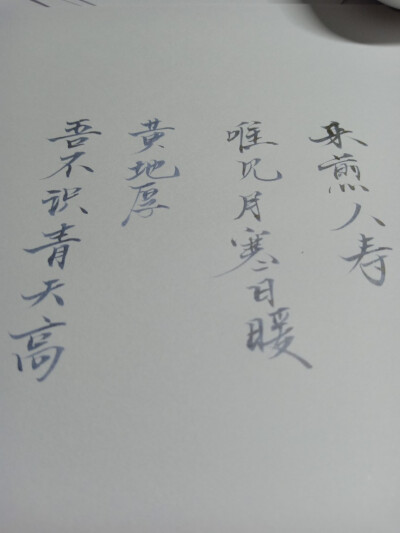 吾不识青天高
黄地厚
唯见月寒日暖
来煎人寿